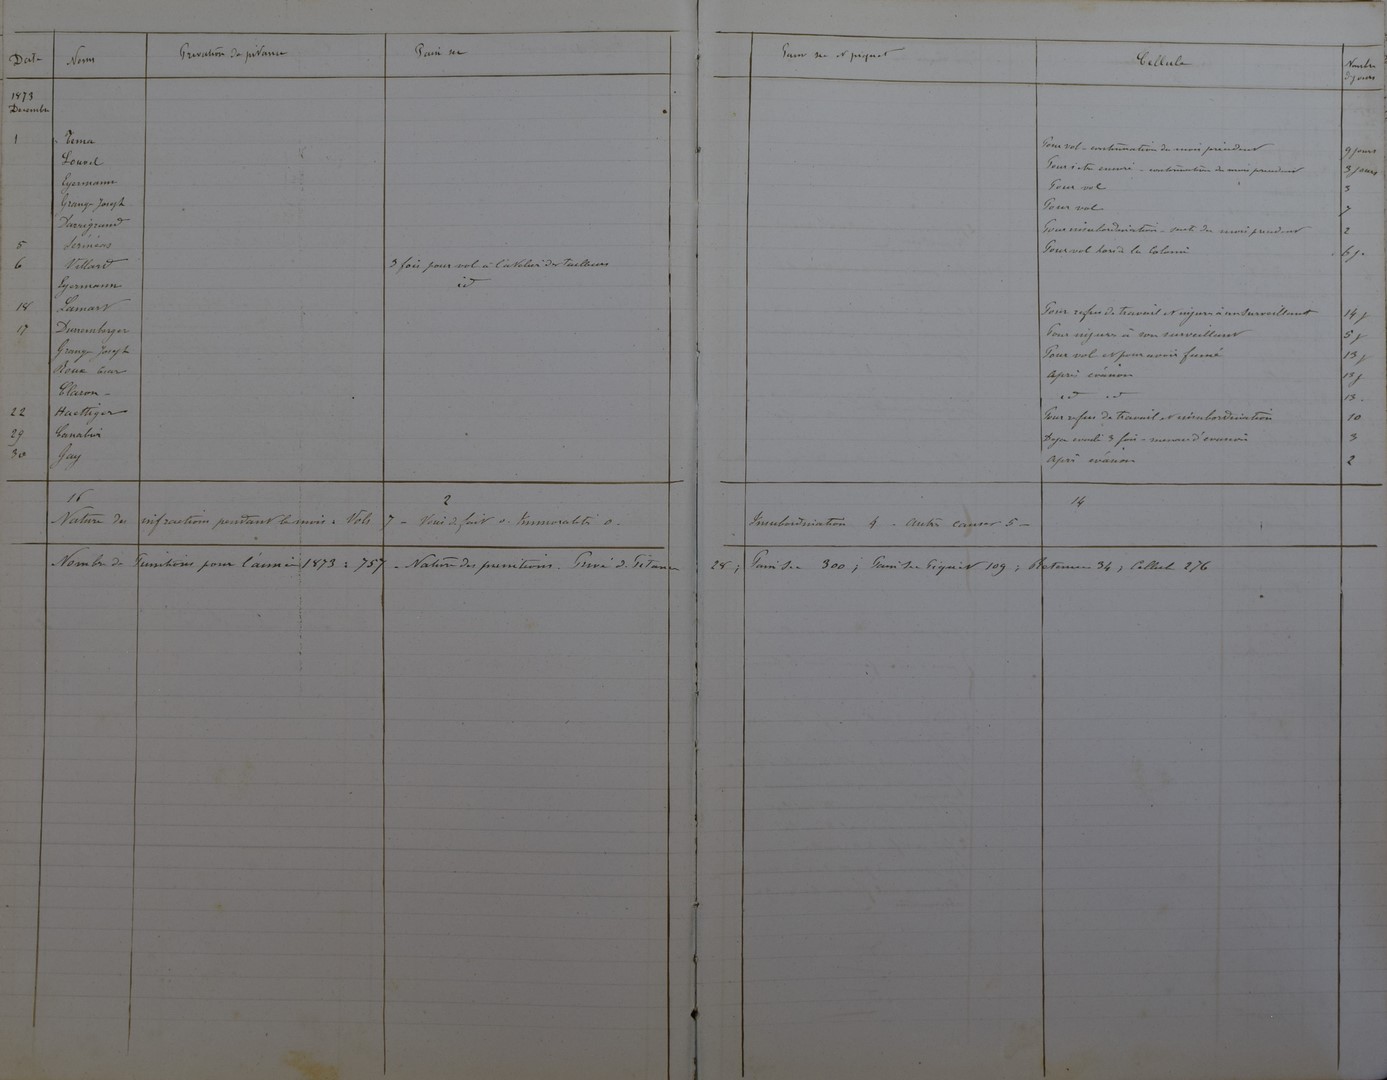 Date Noms Privation de pitance Pain sec Pain sec et piquet Cellule Nombre de jours
1873
Decembre
1 Tema Pour vol - continuation du mois précédent 9 jours
Louvel Pour s'etre enivré - continuation du mois precedent 3 jours
Egermann Pour vol 3
Grange Joseph Pour vol 7
Darrigrand Pour insubordination - suite du mois precedent 2
5 Pour vol hors de la Colonie 6 j.
6 Villard 3 fois pour vol à l'atelier des Tailleurs
Egermann id
14 Lamart Pour refus de travail et injures à un Surveillant 14 j
17 Dunemberger Pour injures à son surveillant 5 j
Grange Joseph Pour vol et pour avoir fumé 13 j
Roux Après évasion 13 j
Claron - id id 13 -
22 Haettiger Pour refus de travail et insubordination 10
29 Canabié Deja evadé 3 fois - menace d'evasion 3
30 Gay Après évasion 2
16 2 14
Nature des infractions pendant le mois : Vols 7 - Voies de fait 0 - Immoralité 0 - Insubordination 4 - Autres causes 5 -
Nombre de Punitions pour l'année 1873 : 757 - Nature des punitions - Privé de Pitance 28 ; Pain Sec 300 ; Pain Sec Piquet 109 ; Retenue 34 ; Cellule 276